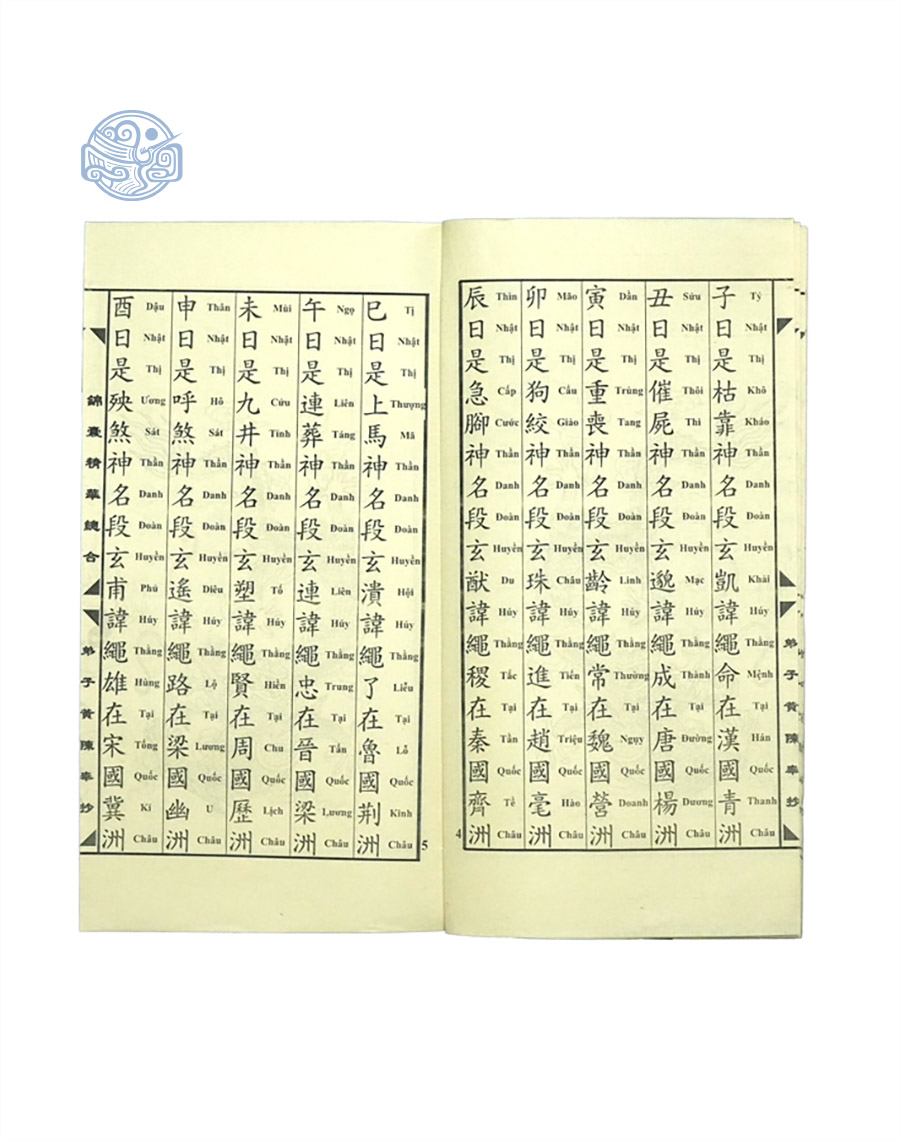 子 Tý 日 Nhật 是 Thị 枯 Khô 靠 Kháo 神 Thần 名 Danh 段 Đoàn 玄 Huyền 凱 Khải 諱 Húy 繩 Thằng 命 Mệnh 在 Tại 漢 Hán 國 Quốc 青 Thanh 洲 Châu
丑 Sửu 日 Nhật 是 Thị 催 Thôi 屍 Thi 神 Thần 名 Danh 段 Đoàn 玄 Huyền 邈 Mạc 諱 Húy 繩 Thằng 成 Thành 在 Tại 唐 Đường 國 Quốc 楊 Dương 洲 Châu
寅 Dần 日 Nhật 是 Thị 重 Trùng 喪 Tang 神 Thần 名 Danh 段 Đoàn 玄 Huyền 齡 Linh 諱 Húy 繩 Thằng 常 Thường 在 Tại 魏 Ngụy 國 Quốc 營 Doanh 洲 Châu
卯 Mão 日 Nhật 是 Thị 狗 Cẩu 絞 Giảo 神 Thần 名 Danh 段 Đoàn 玄 Huyền 珠 Châu 諱 Húy 繩 Thằng 進 Tiến 在 Tại 趙 Triệu 國 Quốc 毫 Hào 洲 Châu
辰 Thìn 日 Nhật 是 Thị 急 Cấp 腳 Cước 神 Thần 名 Danh 段 Đoàn 玄 Huyền 猷 Du 諱 Húy 繩 Thằng 稷 Tắc 在 Tại 秦 Tần 國 Quốc 齊 Tề 洲 Châu
弟子黃陳奉抄
4
巳 Tị 日 Nhật 是 Thị 上 Thượng 馬 Mã 神 Thần 名 Danh 段 Đoàn 玄 Huyền 潰 Hội 諱 Húy 繩 Thằng 了 Liễu 在 Tại 魯 Lỗ 國 Quốc 荆 Kinh 洲 Châu
午 Ngọ 日 Nhật 是 Thị 連 Liên 葬 Táng 神 Thần 名 Danh 段 Đoàn 玄 Huyền 連 Liên 諱 Húy 繩 Thằng 忠 Trung 在 Tại 晉 Tấn 國 Quốc 梁 Lương 洲 Châu
未 Mùi 日 Nhật 是 Thị 九 Cửu 井 Tỉnh 神 Thần 名 Danh 段 Đoàn 玄 Huyền 塑 Tố 諱 Húy 繩 Thằng 賢 Hiền 在 Tại 周 Chu 國 Quốc 歷 Lịch 洲 Châu
申 Thân 日 Nhật 是 Thị 呼 Hô 煞 Sát 神 Thần 名 Danh 段 Đoàn 玄 Huyền 遙 Diêu 諱 Húy 繩 Thằng 路 Lộ 在 Tại 梁 Lương 國 Quốc 幽 U 洲 Châu
酉 Dậu 日 Nhật 是 Thị 殃 Ương 煞 Sát 神 Thần 名 Danh 段 Đoàn 玄 Huyền 甫 Phủ 諱 Húy 繩 Thằng 雄 Hùng 在 Tại 宋 Tống 國 Quốc 冀 Kí 洲 Châu
錦囊精華總合
弟子黃陳奉抄
5